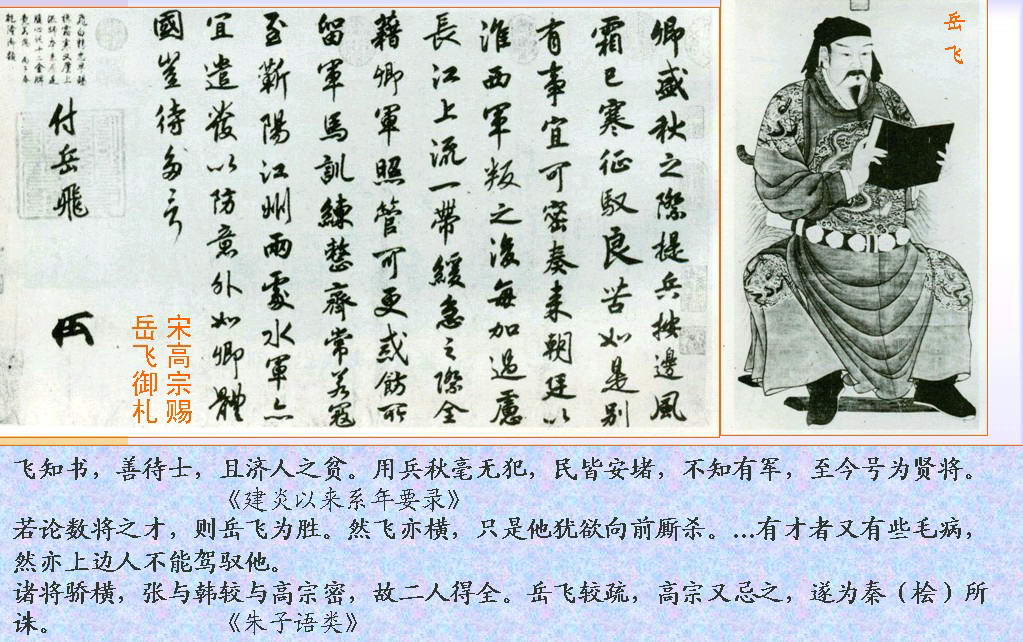 卿盛秋之際提兵按邊風
霜已寒征馭良苦如是別
有事宜可密奏来朝廷以
淮西軍叛之後每加過慮
長江上流一帶緩急之際全
藉卿軍照管可更戒飭所
留軍馬訓練整齊常若寇
至蘄陽江州兩處水軍亦
宜遣發以防意外如卿體
國豈待多言
付岳飛
宋高宗赐
岳飞御札
岳飞
飞知书，善待士，且济人之贫。用兵秋毫无犯，民皆安堵，不知有军，至今号为贤将。
《建炎以来系年要录》
若论数将之才，则岳飞为胜。然飞亦横，只是他犹欲向前厮杀。…有才者又有些毛病，
然亦上边人不能驾驭他。
诸将骄横，张与韩较与高宗密，故二人得全。岳飞较疏，高宗又忌之，遂为秦（桧）所
诛。 《朱子语类》